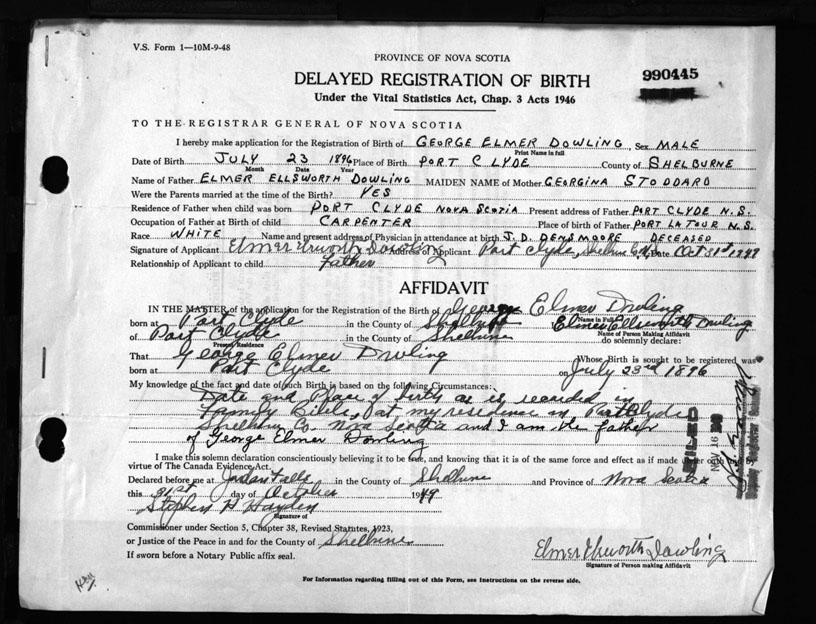 V.S. Form 1—10M-9-48
PROVINCE OF NOVA SCOTIA
DELAYED REGISTRATION OF BIRTH
990445
Under the Vital Statistics Act, Chap. 3 Acts 1946
TO THE REGISTRAR GENERAL OF NOVA SCOTIA
I hereby make application for the Registration of Birth of GEORGE ELMER DOWLING, Sex MALE
Print Name in full
Date of Birth JULY 23 1896 Place of Birth PORT CLYDE County of SHELBURNE
Month Date Year
Name of Father ELMER ELLSWORTH DOWLING MAIDEN NAME of Mother GEORGINA STODDARD
Were the Parents married at the time of the Birth? YES
Residence of Father when child was born PORT CLYDE NOVA SCOTIA Present address of Father PORT CLYDE N.S.
Occupation of Father at Birth of child CARPENTER Place of birth of Father PORT LATOUR N.S.
Race WHITE Name and present address of Physician in attendance at birth J. D. DENSMOORE DECEASED
Signature of Applicant Elmer Dowling Address of Applicant Port Clyde, Date Oct 31st
Relationship of Applicant to child father
AFFIDAVIT
IN THE MATTER of the application for the Registration of Birth of George Elmer Dowling
Name in Full
born at Port Clyde in the County of Elmer Ellsworth Dowling
Name of Person Making Affidavit
of Port Clyde in the County of Shelburne do solemnly declare:
Present Residence
That George Elmer Dowling Whose Birth is sought to be registered was
born at Port Clyde on July 23rd 1896
My knowledge of the fact and date of such Birth is based on the following Circumstances:
Date and Place of birth as is recorded in
Family Bible, at my residence in Port Clyde
Shelburne Co. Nova Scotia and I am the father
of George Elmer Dowling
FILED
16
I make this solemn declaration conscientiously believing it to be true, and knowing that it is of the same force and effect as if made under oath by
virtue of The Canada Evidence Act.
Declared before me at Jordan Falls in the County of Shelburne and Province of Nova Scotia
this 31st day of October 1949
Stephen Hayden
Signature of
Commissioner under Section 5, Chapter 38, Revised Statutes, 1923,
or Justice of the Peace in and for County of Shelburne
If sworn before a Notary Public affix seal.
Elmer Dowling
Signature of Person making Affidavit
For Information regarding filling out of this Form, see Instructions on the reverse side.